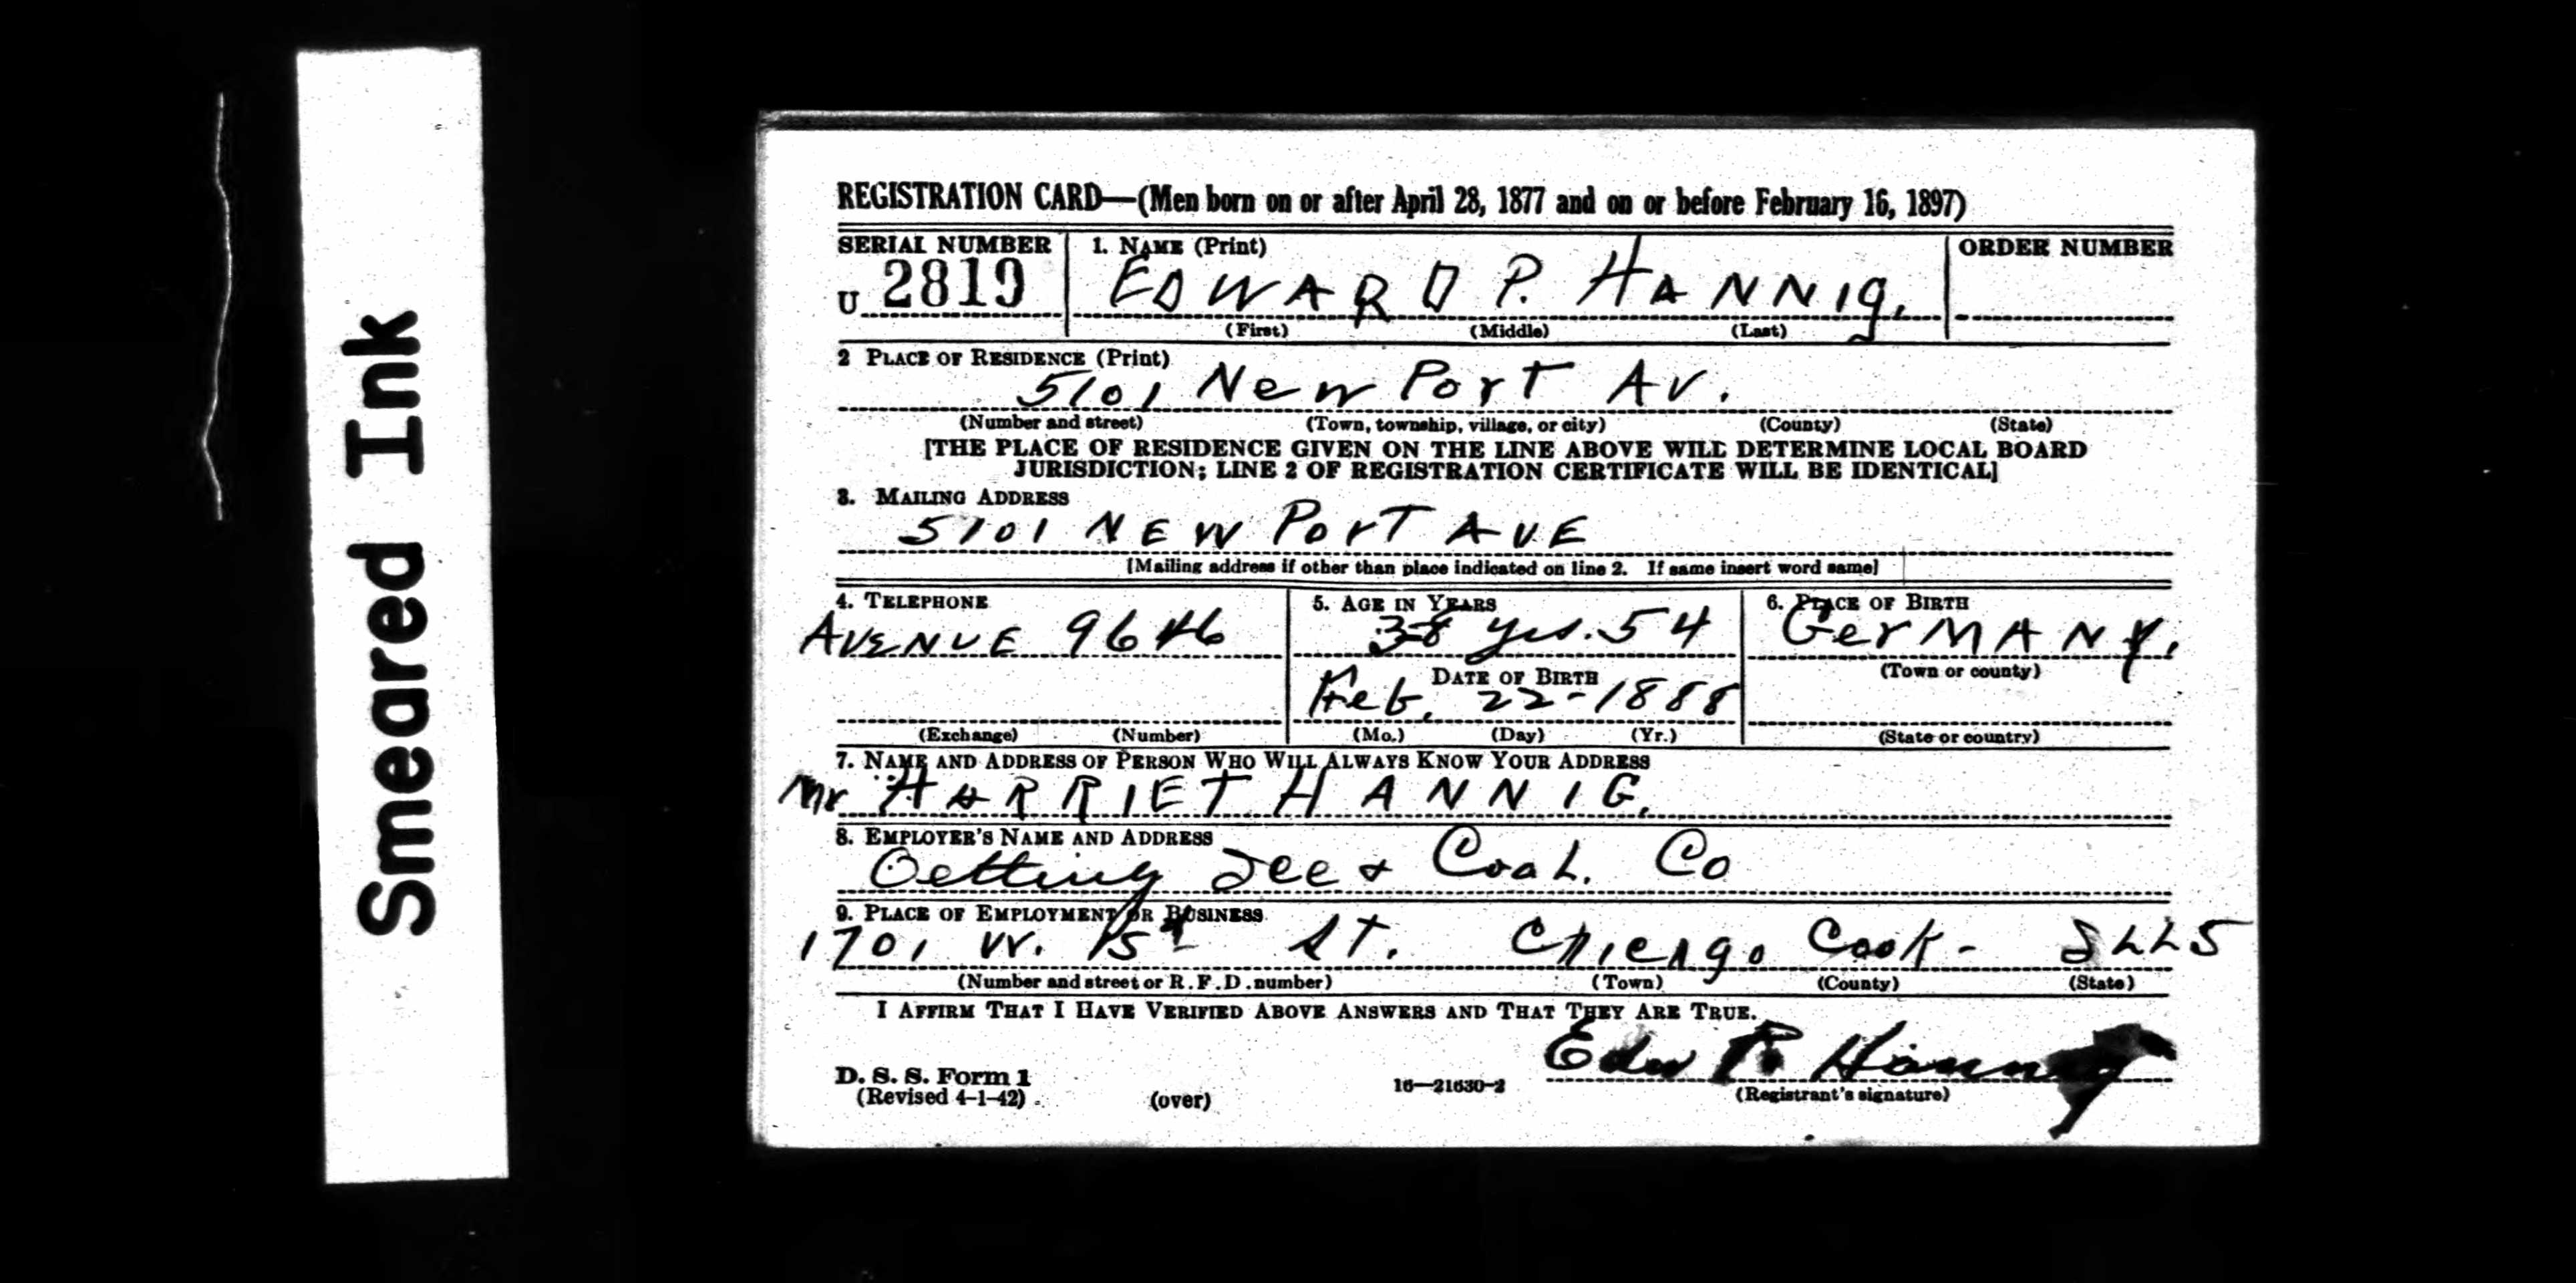 Smeared Ink
REGISTRATION CARD—(Men born on or after April 28, 1877 and on or before February 16, 1897)
SERIAL NUMBER 1. NAME (Print) ORDER NUMBER
U 2819 EDWARD P. HANNIg.
(First) (Middle) (Last)
2 PLACE OF RESIDENCE (Print)
5101 New Port Av.
(Number and street) (Town, township, village, or city) (County) (State)
[THE PLACE OF RESIDENCE GIVEN ON THE LINE ABOVE WILL DETERMINE LOCAL BOARD
JURISDICTION; LINE 2 OF REGISTRATION CERTIFICATE WILL BE IDENTICAL]
3. MAILING ADDRESS
5101 NEW PorT AVE
[Mailing address if other than place indicated on line 2. If same insert word same]
4. TELEPHONE 5. AGE IN YEARS 6. PLACE OF BIRTH
AVENUE 9646 38 yrs. 54 GerMANY.
DATE OF BIRTH (Town or county)
Feb. 22-1888
(Exchange) (Number) (Mo.) (Day) (Yr.) (State or country)
7. NAME AND ADDRESS OF PERSON WHO WILL ALWAYS KNOW YOUR ADDRESS
Mr HARRIET HANNIG.
8. EMPLOYER'S NAME AND ADDRESS
Oetting Ice & Coal. Co
9. PLACE OF EMPLOYMENT OR BUSINESS
1701 W. 15th St. Chicago Cook- ILLS
(Number and street or R.F.D. number) (Town) (County) (State)
I AFFIRM THAT I HAVE VERIFIED ABOVE ANSWERS AND THAT THEY ARE TRUE.
Edw P. Hannig
D. S. S. Form 1
(Revised 4-1-42) (over) 16—21630-2 (Registrant's signature)